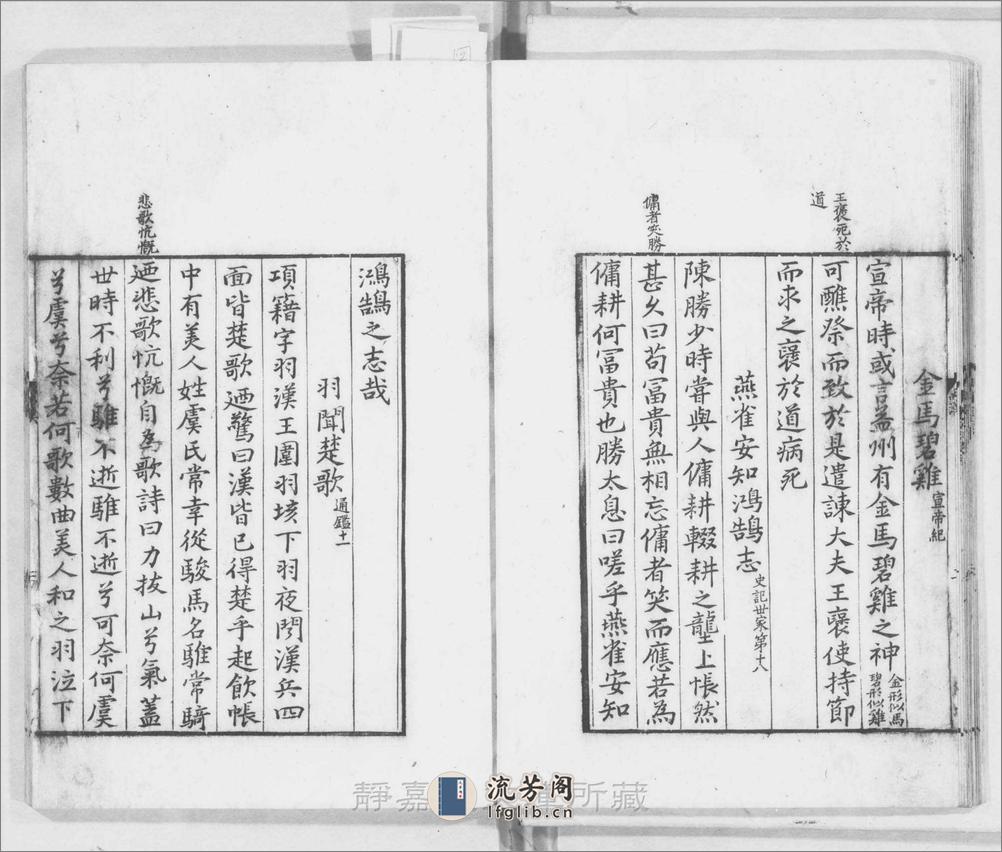 金馬碧雞 宣帝紀
宣帝時或言益州有金馬碧雞之神 金形似馬 碧形似雞
王褒死於
道
可醮祭而致於是遣諫大夫王襃使持節
而求之襃於道病死
燕雀安知鴻鵠志 史記世家第十八
陳勝少時嘗與人傭耕輟耕之壟上悵然
傭者笑勝
甚久曰苟冨貴無相忘傭者笑而應若為
傭耕何冨貴也勝太息曰嗟乎燕雀安知
鴻鵠之志哉
羽聞楚歌 通鑑十一
項籍字羽漢王圍羽垓下羽夜聞漢兵四
面皆楚歌迺驚曰漢皆已得楚乎起飲帳
中有美人姓虞氏常幸從駿馬名騅常騎
悲歌忼慨
迺悲歌忼慨自為歌詩曰力拔山兮氣蓋
世時不利兮騅不逝騅不逝兮可奈何虞
兮虞兮奈若何歌數曲美人和之羽泣下
靜嘉
所藏
流芳阁
lfglib.cn